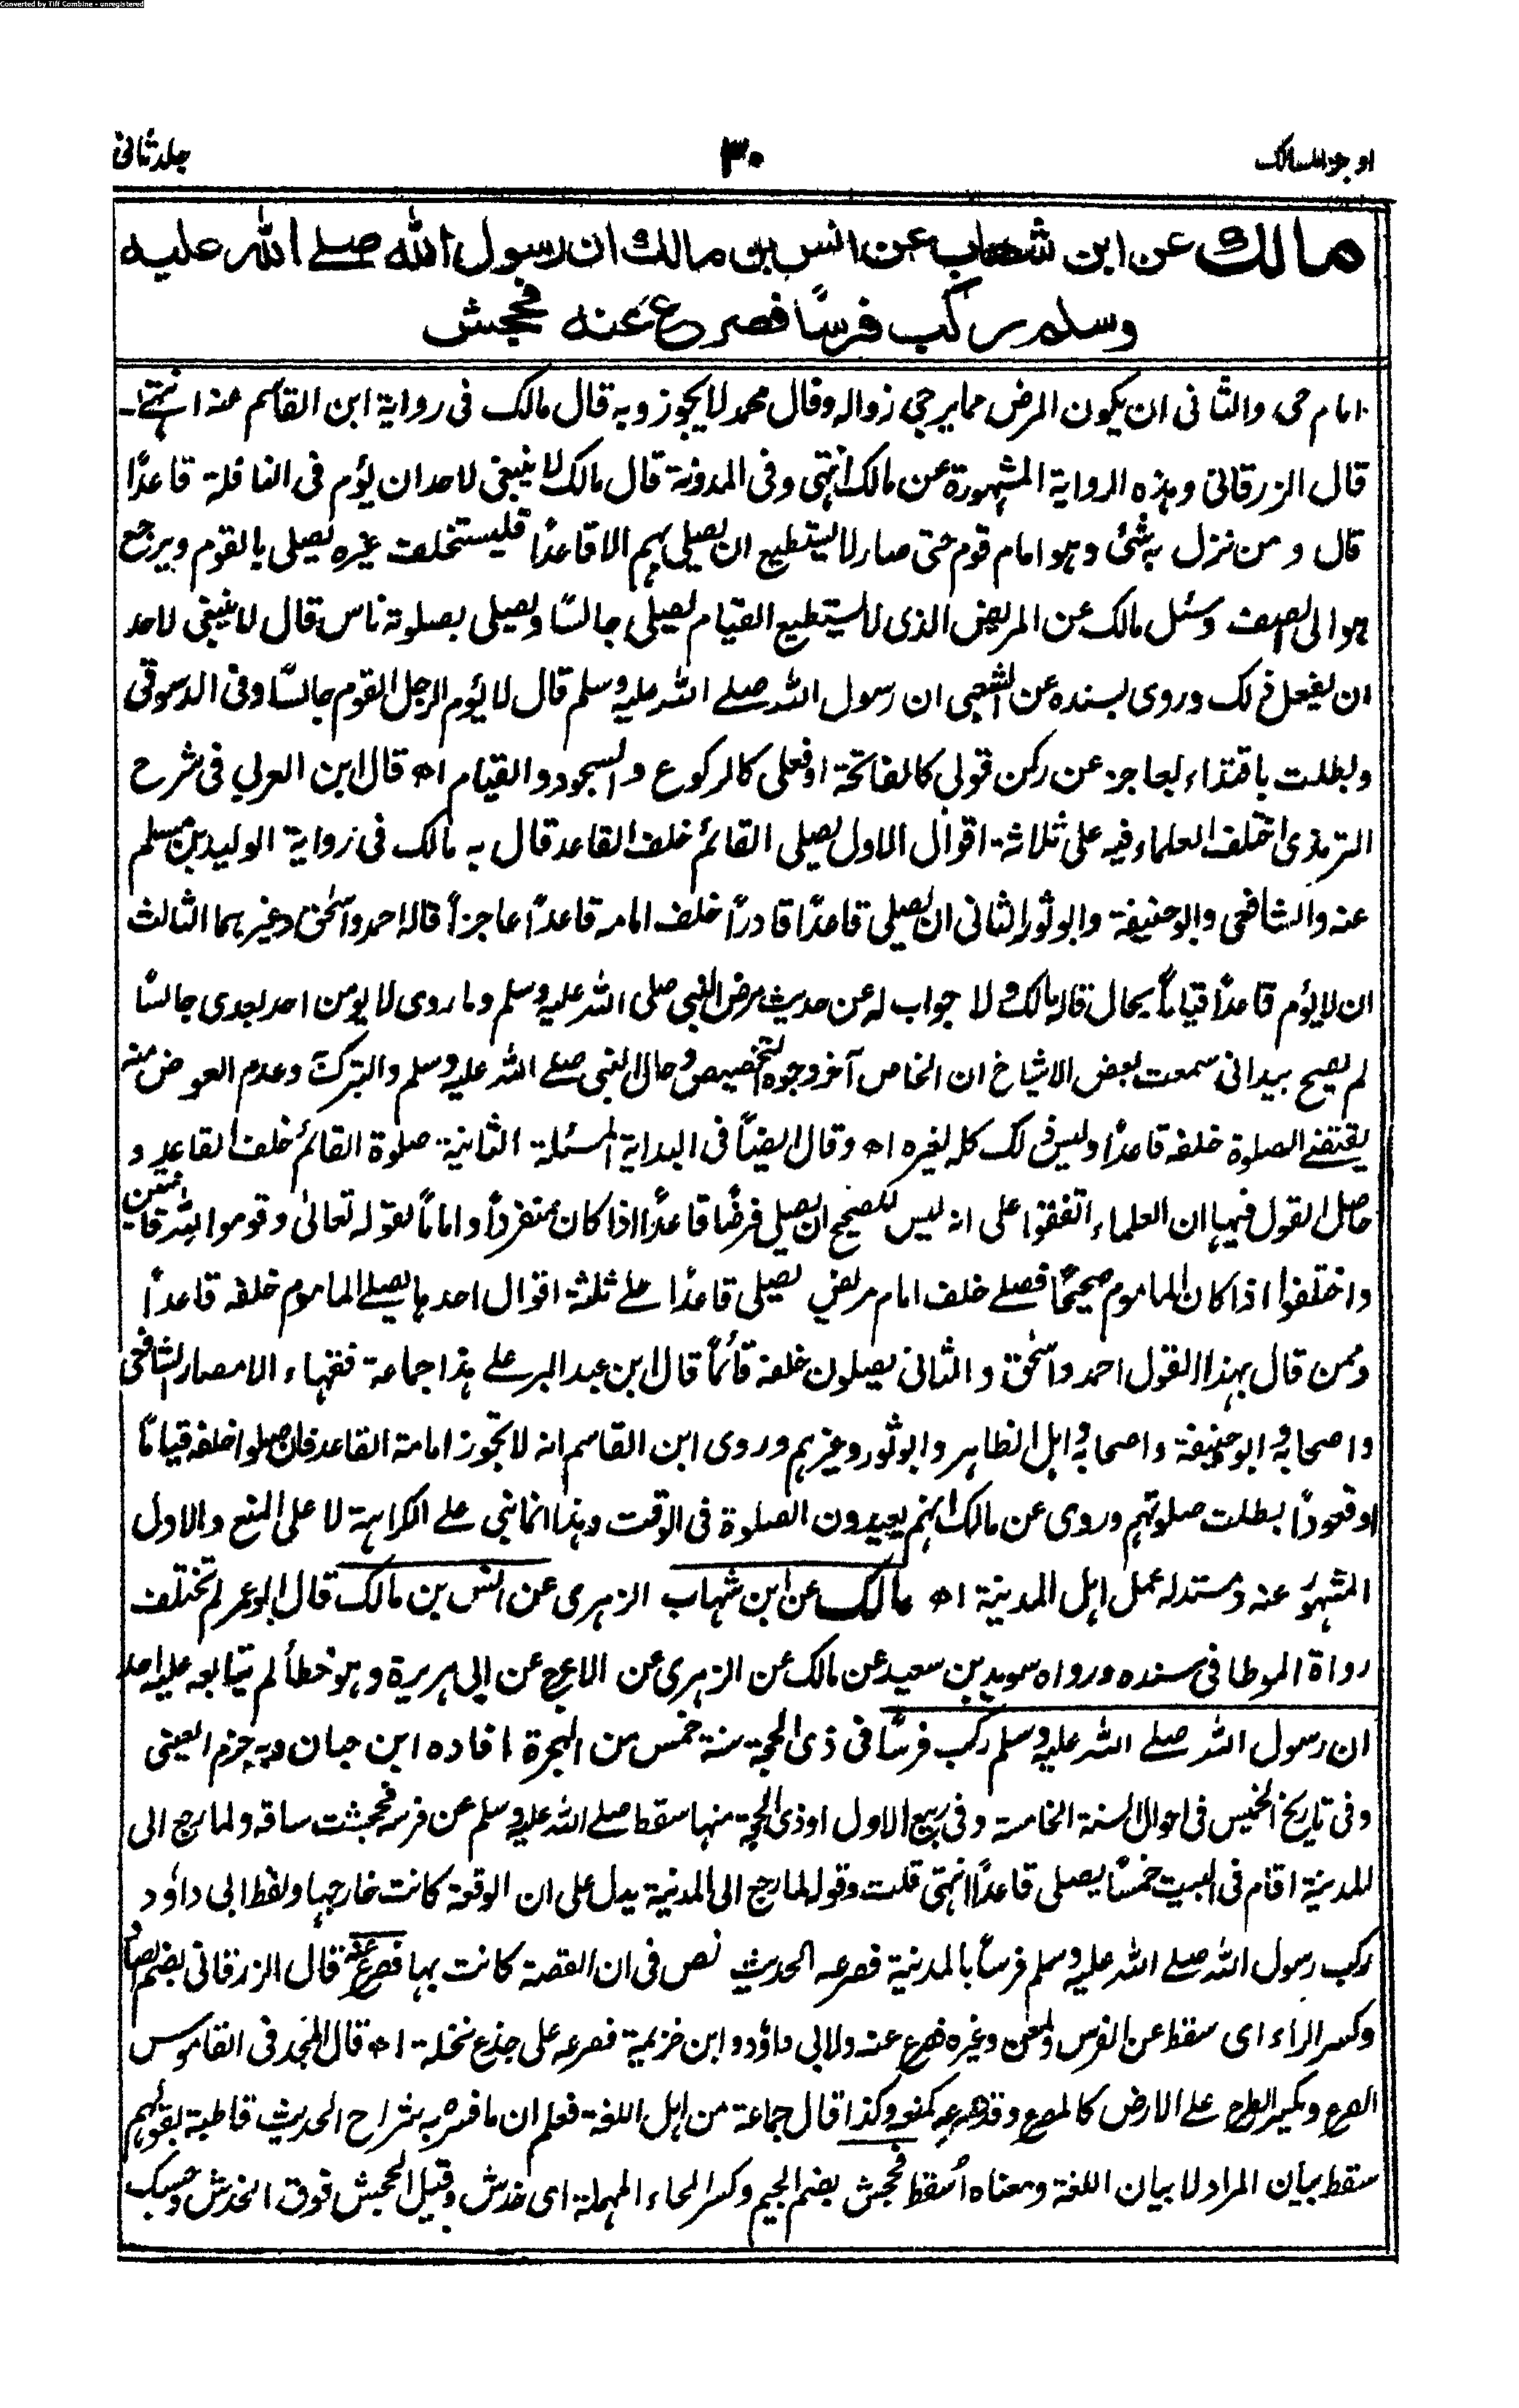 Converted by Tiff Combine - unregistered
اوجز المسالك
٣٠
جلد ثانی
مالك عن ابن شهاب عن انس بن مالك ان رسول الله صلے الله عليه
وسلم ركب فرسًا فصرع عنه فجحش
امام حی والثانی ان یکون المرض مما یرجی زواله وقال محمد لا یجوز وبه قال مالک فی روایة ابن القاسم عنه انتہے۔
قال الزرقانی وہذہ الروایة المشہورة عن مالک انتہی وفی المدونة قال مالک لا ینبغی لاحد ان یؤم فی النافلة قاعدًا
قال ومن نزل بہ شئ وہو امام قوم حتی صار لا یستطیع ان یصلی بہم الا قاعدًا فلیستخلف غیرہ یصلی بالقوم ویرجع
ہو الی الصف وسئل مالک عن المریض الذی لا یستطیع القیام یصلی جالسًا ویصلی بصلوتہ ناس قال لا ینبغی لاحد
ان یفعل ذلک وروی بسندہ عن الشعبی ان رسول اللہ صلے اللہ علیہ وسلم قال لا یؤم الرجل القوم جالسًا وفی الدسوقی
وبطلت باقتداء بعاجز عن رکن قولی کالفاتحة او فعلی کالرکوع والسجود والقیام اھ قال ابن العربی فی شرح
الترمذی اختلف العلماء فیہ علی ثلاثة اقوال الاول یصلی القائم خلف القاعد قال بہ مالک فی روایة الولید بن مسلم
عنہ والشافعی وابو حنیفة وابو ثور الثانی ان یصلی قاعدًا قادرًا خلف امامہ قاعدًا عاجزاً قالہ احمد واسحٰق وغیرہما الثالث
ان لا یؤم قاعدًا قیاماً بحال قالہ مالک ولا جواب لہ عن حدیث مرض النبی صلی اللہ علیہ وسلم وما روی لا یومن احد بعدی جالسًا
لم یصح بید انی سمعت بعض الاشیاخ ان الخاص آخر وجوہ التخصیص وحال النبی صلے اللہ علیہ وسلم والتبرک وعدم العوض منہ
یقتضے الصلوة خلفہ قاعدًا ولیس ذلک کلہ لغیرہ اھ وقال ایضاً فی البدایة المسئلة الثانیة صلوة القائم خلف القاعد و
حاصل القول فیہا ان العلماء اتفقوا علی انہ لیس للصحیح ان یصلی فرضًا قاعدًا اذا کان منفرداً واماماً لقولہ تعالیٰ وقوموا للہ قانتین
واختلفوا اذا کان الماموم صحیحًا فصلے خلف امام مریض یصلی قاعدًا علے ثلثة اقوال احدہا یصلے الماموم خلفہ قاعداً
وممن قال بہذا القول احمد واسحٰق والثانی یصلون خلفہ قائماً قال ابن عبد البر علے ہذا جماعة فقہاء الامصار الشافعی
واصحابہ وابو حنیفة واصحابہ واہل الظاہر وابو ثور وغیرہم وروی ابن القاسم انہ لا تجوز امامة القاعد فان صلوا خلفہ قیامًا
او قعوداً بطلت صلوتہم وروی عن مالک انہم یعیدون الصلوة فی الوقت وہذا انما بنی علے الکراہة لا علی المنع والاول
المشہور عنہ ومستدلہ عمل اہل المدینة اھ مالک عن ابن شہاب الزہری عن انس بن مالک قال ابو عمر لم تختلف
رواة الموطا فی سندہ ورواہ سوید بن سعید عن مالک عن الزہری عن الاعرج عن ابی ہریرة وہو خطأ لم یتابعہ علیہ احد
ان رسول اللہ صلے اللہ علیہ وسلم رکب فرسًا فی ذی الحجة سنة خمس من الہجرة افادہ ابن حبان وبہ جزم العینی
وفی تاریخ الخمیس فی احوال السنة الخامسة وفی ربیع الاول او ذی الحجة منہا سقط صلے اللہ علیہ وسلم عن فرسہ فجحشت ساقہ ولما رجع الی
المدینة اقام فی البیت خمسًا یصلی قاعداً انتہی قلت وقولہ لما رجع الی المدینة یدل علی ان الوقعة کانت خارجہا ولفظ ابی داؤد
رکب رسول اللہ صلے اللہ علیہ وسلم فرسًا بالمدینة فصرعہ الحدیث نص فی ان القصة کانت بہا فصرع عنہ قال الزرقانی بضم الصاد
وکسر الراء ای سقط عن الفرس ولمعن وغیرہ فصرع عنہ ولابی داؤد وابن خزیمة فصرعہ علی جذع نخلة اھ قال المجد فی القاموس
الصرع ویکسر الطرح علے الارض کالمصرع وقد صرعہ کمنعہ وکذا قال جماعة من اہل اللغة فعلم ان ما فسرہ بہ شراح الحدیث قاطبة بقولہم
سقط بیان المراد لا بیان اللغة ومعناہ اُسقط فجحش بضم الجیم وکسر الحاء المہملة ای خدش وقیل الجحش فوق الخدش وحسبک